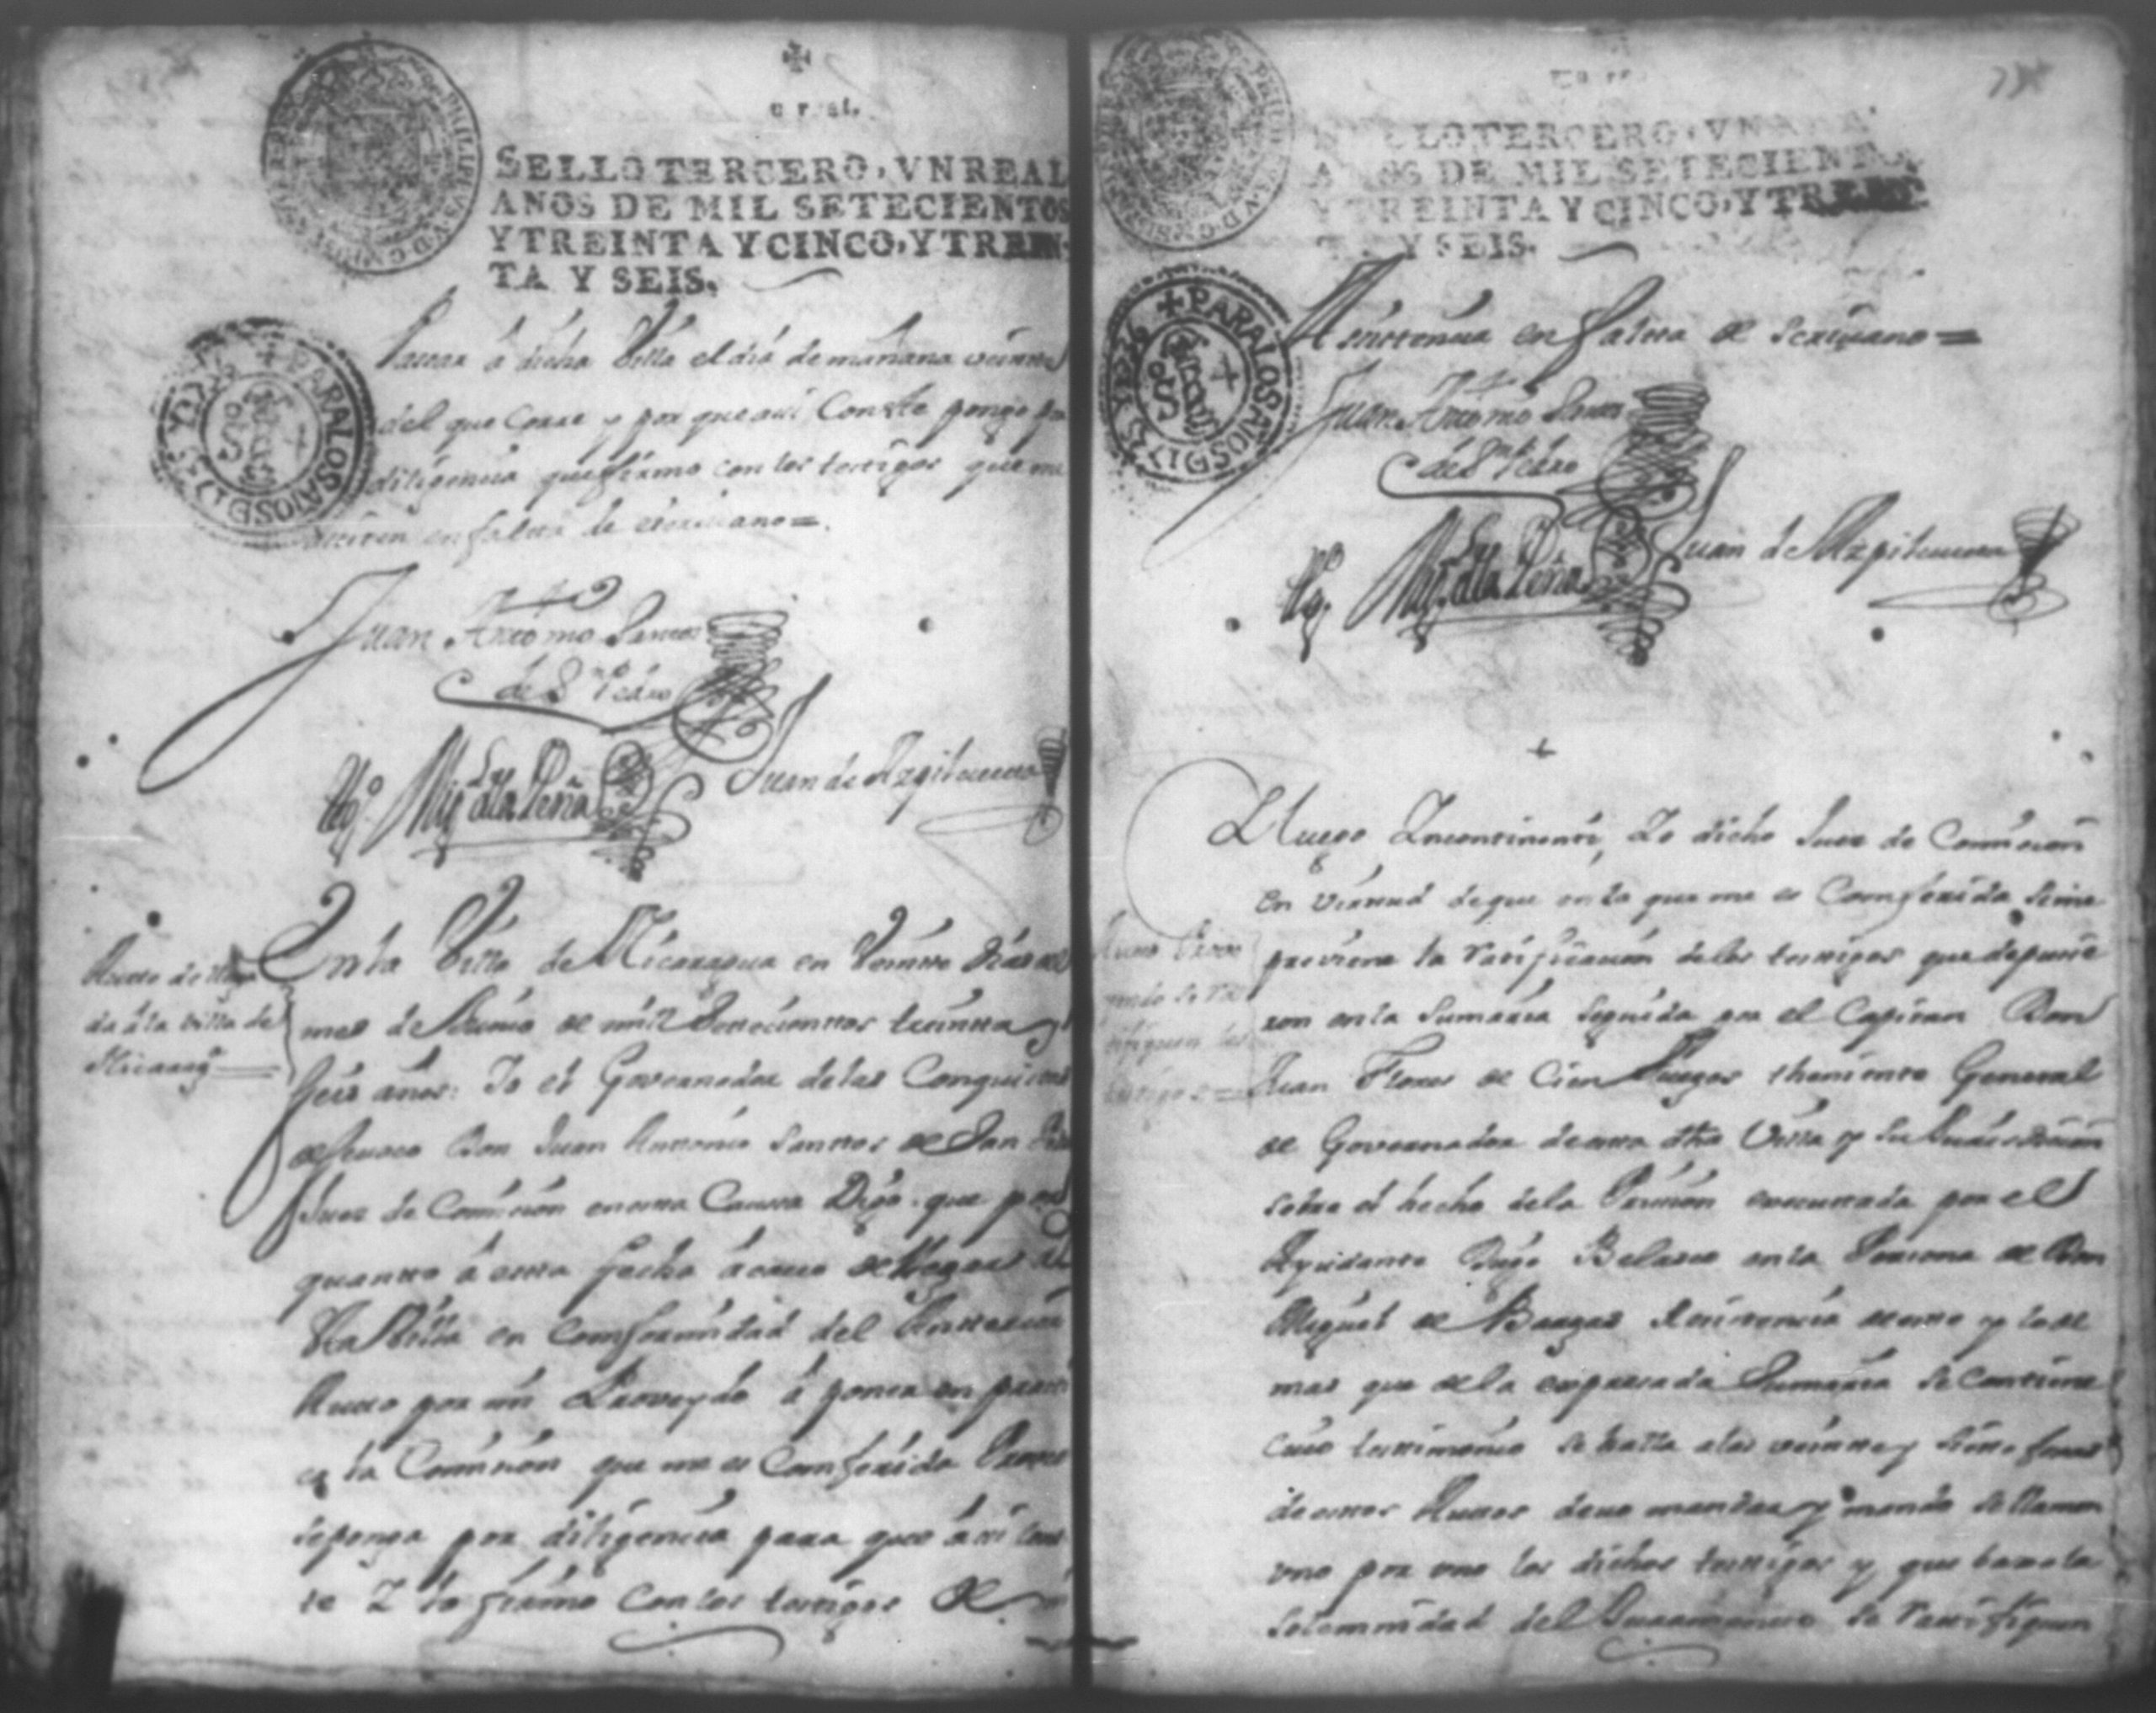 SELLO TERCERO, VN REAL
AÑOS DE MIL SETECIENTOS
Y TREINTA Y CINCO, Y TREIN-
TA Y SEIS.
PARA LOS AÑOS DE 1735 Y 1736
Passar á dicha Villa el dia de mañana veinte
del que Corre y por que assi Conste pongo por
diligencia que firmo con los testigos que me
assisten en falta de escriuano =
Juan Antonio Santos
de Sn Pedro
Migl de la Peña
Juan de Azpilcueta
Auto de llega
da á la Villa de
Nicarag =
En la Villa de Nicaragua en Veinte dias del
mes de Junio de mill Setecientos treinta y
seis años: Yo el Governador de las Conquistas
de Don Juan Antonio Santos de San Pedro
Juez de Comission en esta Caussa Digo: que por
quanto á esta fecha acauo de llegar á
dha Villa en Comformidad del Antezedente
Auto por mi Proveydo á poner en practi
ca la Comission que me es Comferida
se ponga por diligencia para que assi cons
te Y lo firmo Con los testigos de mi
SELLO TERCERO, VN REAL
AÑOS DE MIL SETECIENTOS
Y TREINTA Y CINCO, Y TREIN
TA Y SEIS.
PARA LOS AÑOS DE 1735 Y 1736
Assistencia en falta de Scriuano =
Juan Antonio Santos
de Sn Pedro
Migl de la Peña
Juan de Azpilcueta
Auto
mdo se ra
tifiquen los
testigos =
Y luego Yncontinenti, Yo dicho Juez de Comission
en virtud de que en la que me es Comferida se me
previene la ratificacion de los testigos que depusie
ron en la Sumaria Seguida por el Capitan Don
Juan Flores de Cien Fuegos theniente General
de Governador de esta dha Villa y su Jurisdiccion
sobre el hecho de la Prission executada por el
Ayudante Diego Belasco en la Perssona de Don
Miguel de Bargas Resistencia de este y lo de
mas que de la expressada Sumaria se Contiene
cuio testimonio se halla á las veinte y siete foxas
de estos Autos deuo mandar y mando se llamen
vno por vno los dichos testigos y que baxo la
solemnidad del Juramento se ratifiquen